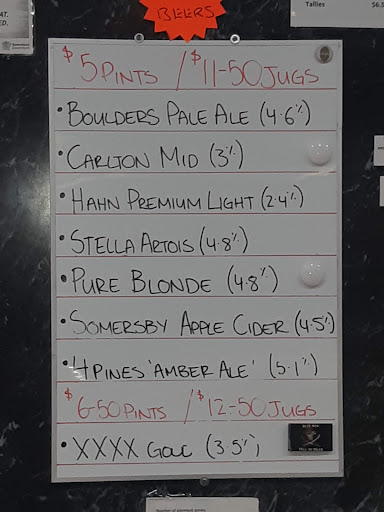 BEERS
Tallies $6.5
$5 PINTS / $11-50 JUGS
• BOULDERS PALE ALE (4.6%)
• CARLTON MID (3%)
• HAHN PREMIUM LIGHT (2.4%)
• STELLA ARTOIS (4.8%)
• PURE BLONDE (4.8%)
• SOMERSBY APPLE CIDER (4.5%)
• 4 PINES 'AMBER ALE' (5.1%)
$6-50 PINTS / $12-50 JUGS
• XXXX GOLD (3.5%)